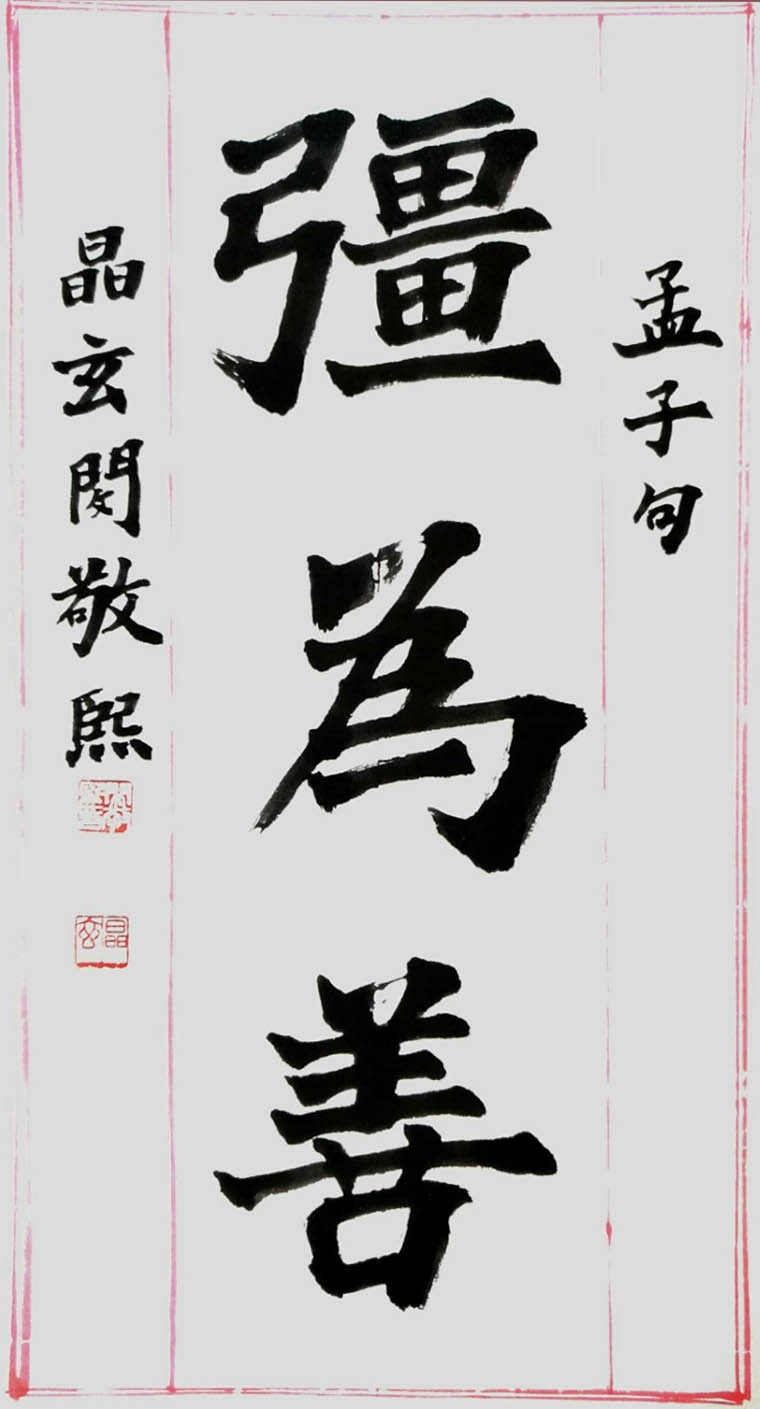 孟子句
彊為善
晶玄閔敬熙
晶玄